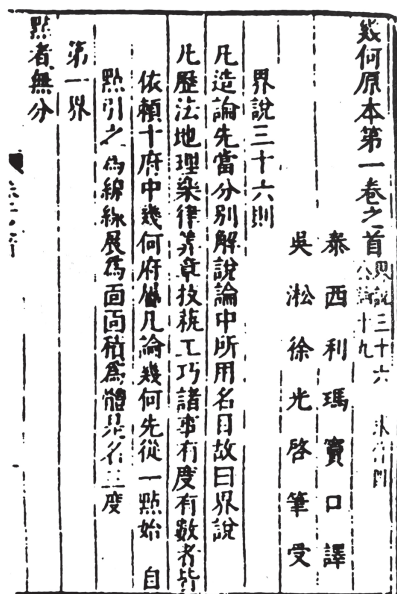 幾何原本第一卷之首 界說三十六 公論十九
泰西利瑪竇口譯
吳淞徐光啓筆受
界說三十六則
凡造論先當分別解說論中所用名目故曰界說
凡歷法地理樂律筭章技藝工巧諸事有度有數者皆
依賴十府中幾何府屬凡論幾何先從一點始自
點引之為線線展為面面積為體是名三度
第一界
點者無分